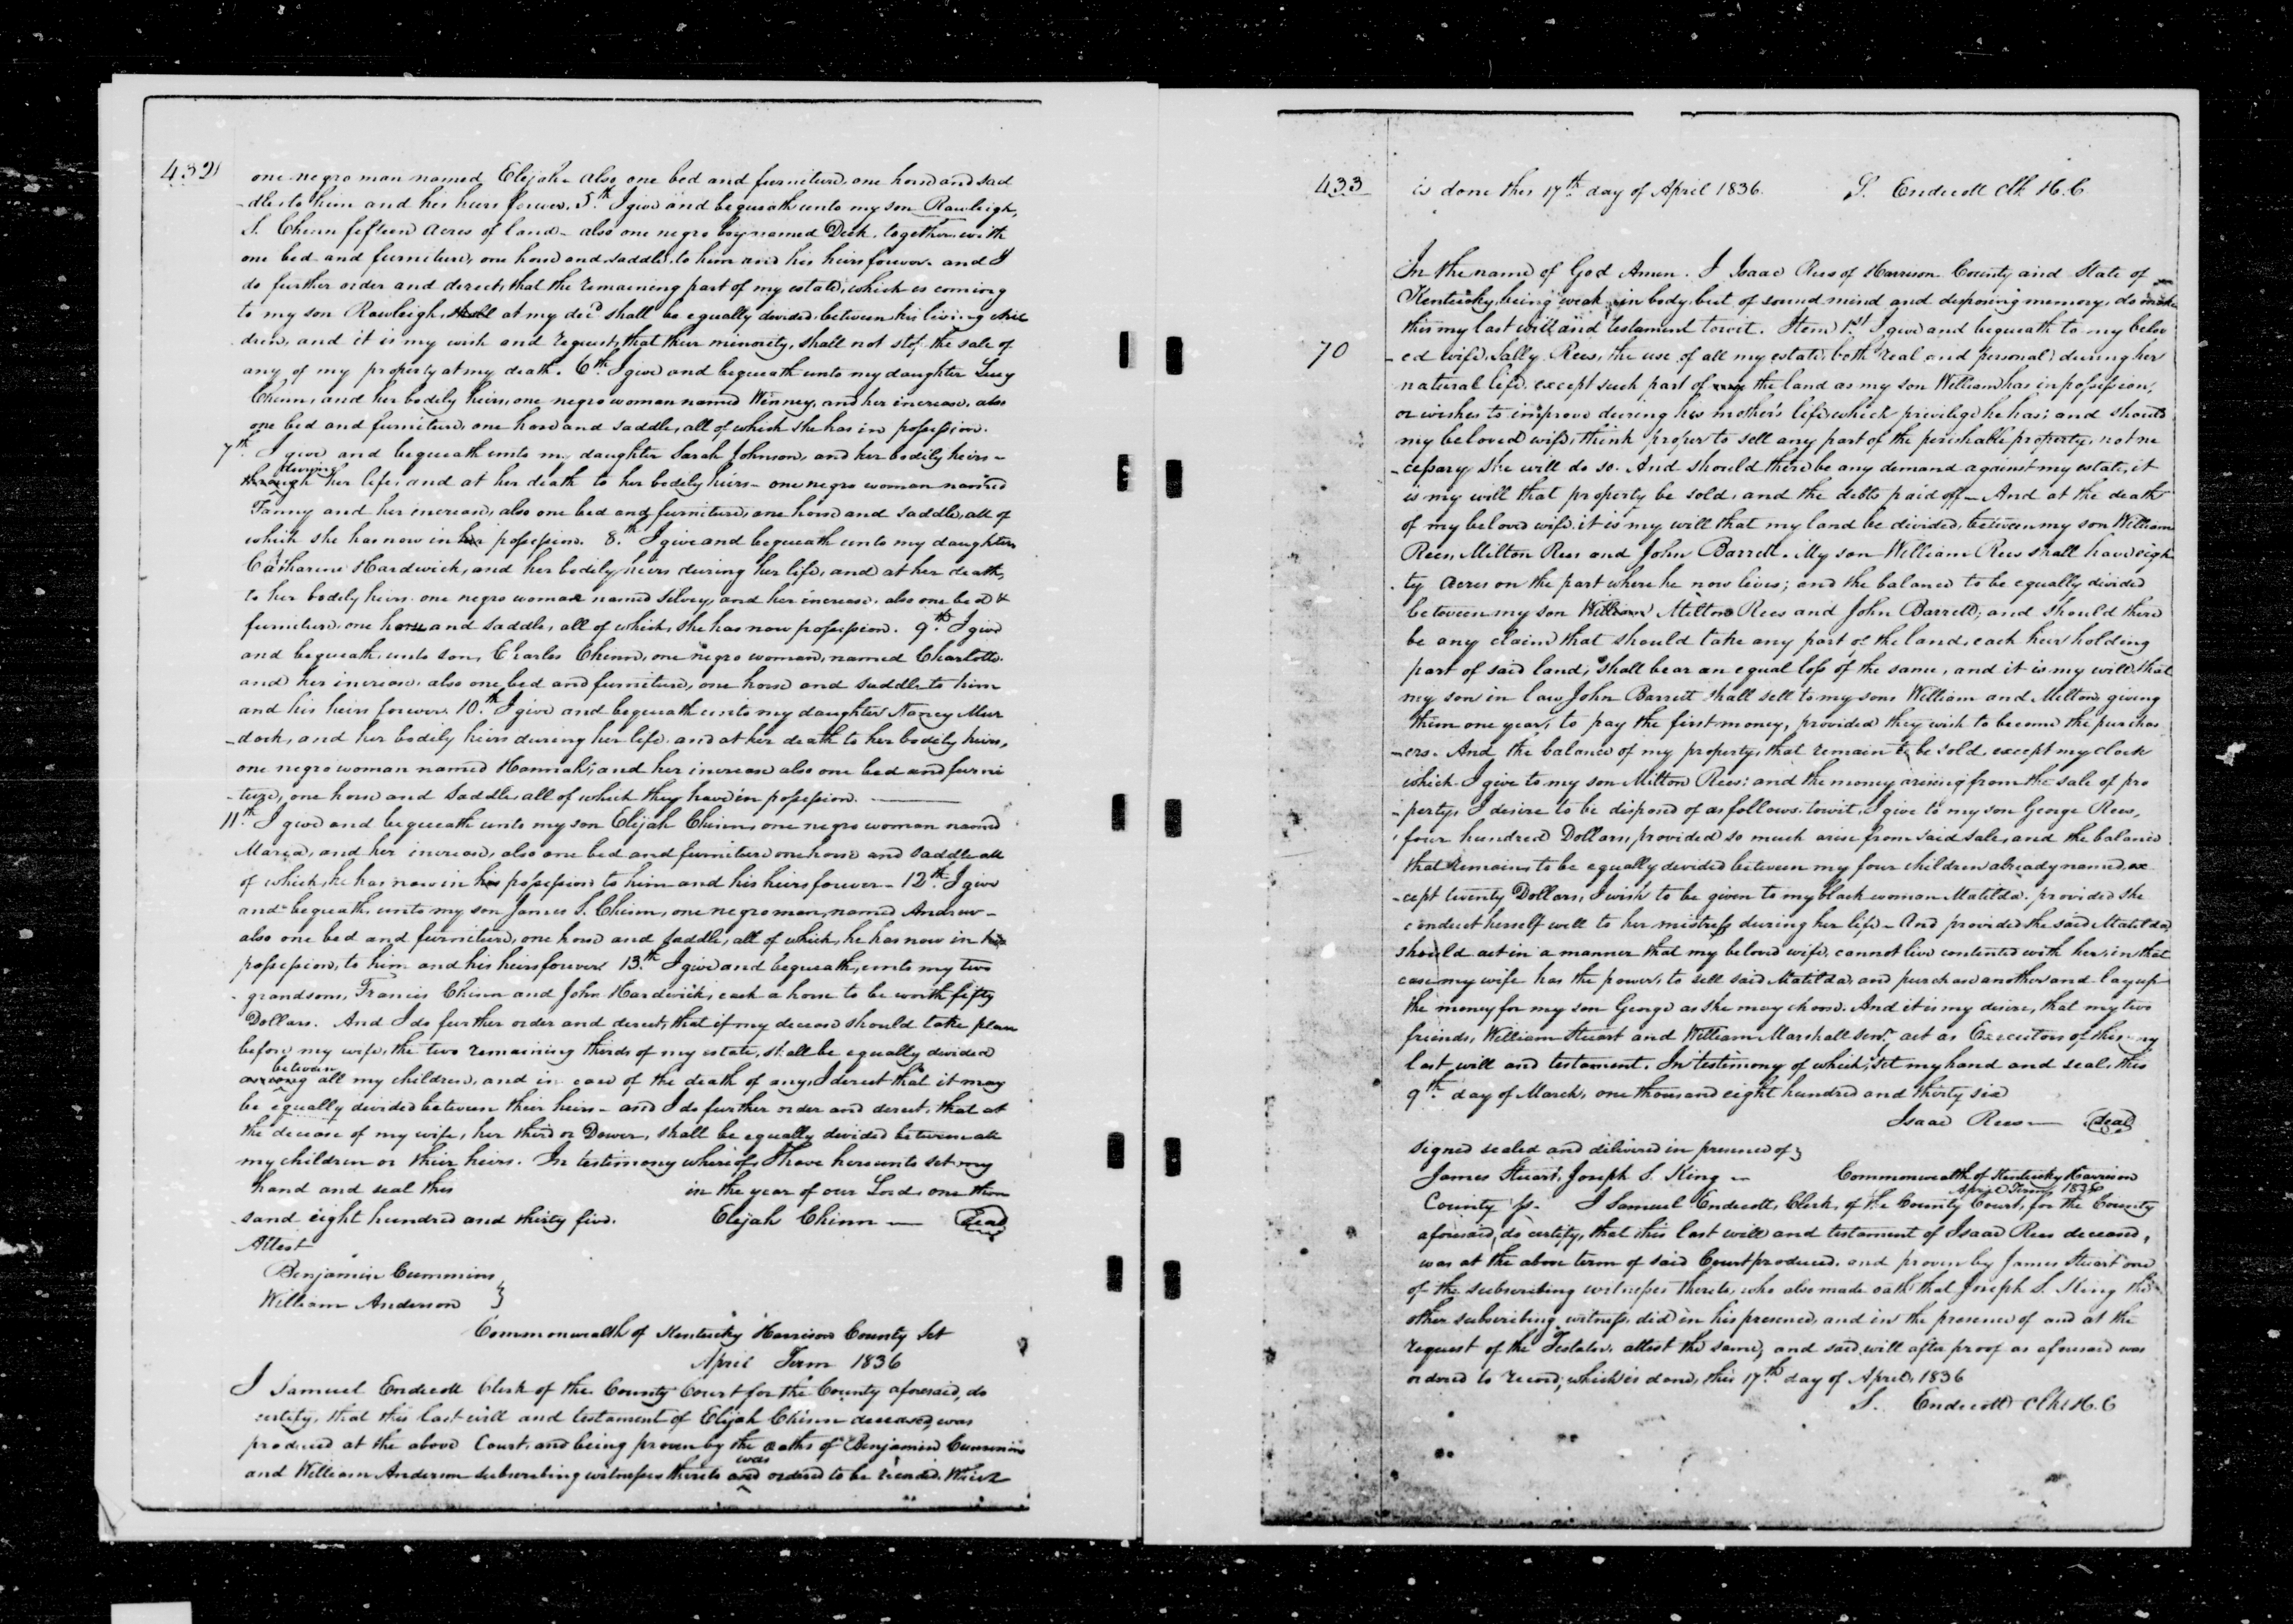 432
one negro man named Elijah also one bed and furniture, one horse and sad
-dle to him and his heirs forever. 5th. I give and bequeath unto my son Rawleigh,
S. Chinn fifteen acres of land - also one negro boy named Dick, together with
one bed and furniture, one horse and saddle, to him and his heirs forever. and I
do further order and direct, that the remaining part of my estate, which is coming
to my son Rawleigh, at my decd shall be equally divided, between his living chil
dren, and it is my wish and request, that their minority, shall not stop the sale of
any of my property at my death. 6th. I give and bequeath unto my daughter Lucy
Chinn, and her bodily heirs, one negro woman named Winney, and her increase, also
one bed and furniture, one horse and saddle, all of which she has in possession.
7th. I give and bequeath unto my daughter Sarah Johnson, and her bodily heirs -
during
through her life, and at her death to her bodily heirs - one negro woman named
Fanny and her increase, also one bed and furniture, one horse and saddle, all of
which she has now in her possession. 8th. I give and bequeath unto my daughter
Catharine Hardwick, and her bodily heirs during her life, and at her death,
to her bodily heirs. one negro woman named Silvey, and her increase, also one bed &
furniture, one horse and saddle, all of which, she has now possession. 9th. I give
and bequeath, unto son, Charles Chinn, one negro woman, named Charlotte.
and her increase, also one bed and furniture, one horse and saddle to him
and his heirs forever. 10th. I give and bequeath unto my daughter Nancy Mur
-dock, and her bodily heirs during her life, and at her death to her bodily heirs,
one negro woman named Hannah; and her increase also one bed and furni
-ture, one horse and saddle, all of which they have in possession.
11th. I give and bequeath unto my son Elijah Chinn, one negro woman named
Maria, and her increase, also one bed and furniture one horse and saddle all
of which, he has now in his possession to him and his heirs forever - 12th. I give
and bequeath, unto my son James S. Chinn, one negro man, named Andrew -
also one bed and furniture, one horse and saddle, all of which, he has now in his
possession, to him and his heirs forever 13th. I give and bequeath, unto my two
grandsons, Francis Chinn and John Hardwick, each a horse to be worth fifty
Dollars. And I do further order and direct, that if my decease should take place
before my wife, the two remaining thirds of my estate, shall be equally divided
between
among all my children, and in case of the death of any, I direct that it may
be equally divided between their heirs - and I do further order and direct, that at
the decease of my wife, her third or Dower, shall be equally divided between all
my children or their heirs. In testimony whereof, I have hereunto set my
hand and seal this in the year of our Lord, one thou
-sand eight hundred and thirty five. Elijah Chinn — Seal
Attest
Benjamin Cummins
William Anderson }
Commonwealth of Kentucky Harrison County Sct
April Term 1836
I Samuel Endicott Clerk of the County Court for the County aforesaid, do
certify, that this last will and testament of Elijah Chinn deceased, was
produced at the above Court, and being proven by the oaths of Benjamin Cummins
was
and William Anderson subscribing witnesses thereto and ordered to be recorded. Which
433
is done this 17th day of April 1836. S. Endicott Clk H.C
In the name of God Amen. I Isaac Rees of Harrison County and State of
Kentucky, being weak in body, but of sound mind and disposing memory, do make
this my last will and testament towit. Item 1st I give and bequeath to my belov
70
-ed wife, Sally Rees, the use of all my estate, both real and personal, during her
natural life. except such part of the land as my son William has in possession,
or wishes to improve during his mother's life which privilege he has; and should
my beloved wife, think proper to sell any part of the perishable property, not ne
-cessary she will do so. And should there be any demand against my estate, it
is my will that property be sold, and the debts paid off - And at the death
of my beloved wife, it is my will that my land be divided, between my son William
Rees, Milton Rees and John Barrett. My son William Rees shall have eigh
-ty acres on the part where he now lives; and the balance to be equally divided
between my son Milton Rees and John Barrett; and should there
be any claim that should take any part of the land, each heir holding
part of said land, shall bear an equal loss of the same, and it is my will, that
my son in law John Barrett shall sell to my sons William and Milton, giving
them one year, to pay the first money, provided they wish to become the purchas
-ers. And the balance of my property, that remain to be sold, except my clock
which I give to my son Milton Rees; and the money arising from the sale of pro
-perty, I desire to be disposed of as follows. towit, I give to my son George Rees,
four hundred Dollars, provided so much arise from said sale, and the balance
that remains to be equally divided between my four children already named, ex
-cept twenty Dollars, I wish to be given to my black woman Matilda. provided she
conduct herself well to her mistress during her life - And provided the said Matilda,
should act in a manner that my beloved wife, cannot live contented with her, in that
case my wife has the power, to sell said Matilda, and purchase another and lay up
the money for my son George as she may choose. And it is my desire, that my two
friends, William Stuart and William Marshall Senr. act as Executors of this my
last will and testament. In testimony of which, I set my hand and seal, this
9th day of March, one thousand eight hundred and thirty six
Isaac Rees — Seal
signed sealed and delivered in presence of }
James Stuart, Joseph S. King — Commonwealth of Kentucky Harrison
April Term 1836
County Ss. I Samuel Endicott, Clerk, of the County Court, for the County
aforesaid, do certify, that this last will and testament of Isaac Rees deceased,
was at the above term of said Court produced, and proven by James Stuart one
of the subscribing witnesses thereto, who also made oath that Joseph S. King the
other subscribing witness, did in his presence, and in the presence of and at the
request of the Testator, attest the same, and said will after proof as aforesaid was
ordered to record; which is done, this 17th day of April, 1836
S. Endicott Clk H.C